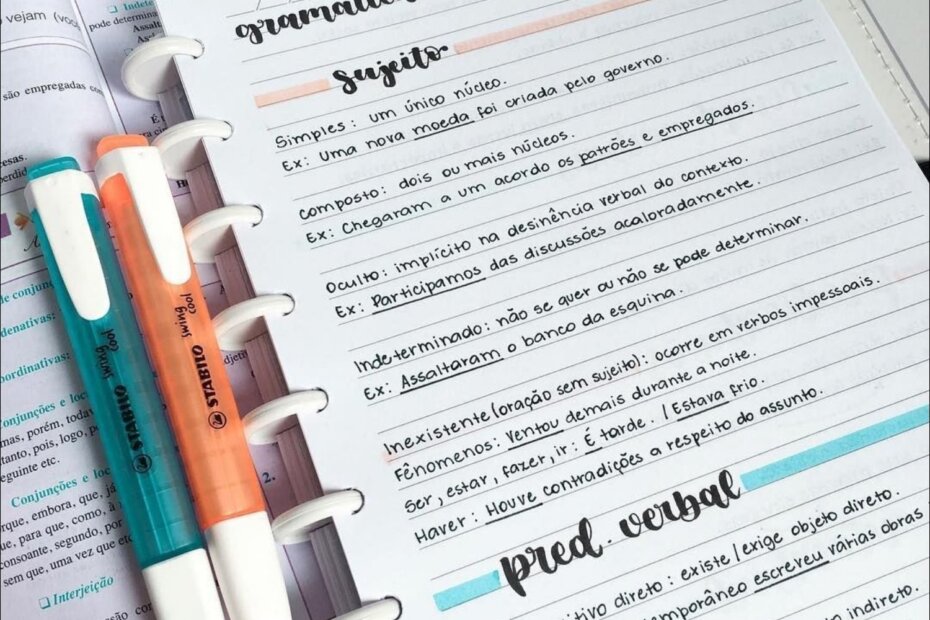 vejam
Indete
pode determina
Assalt
são empregadas
gramática
Sujeito
Simples: um único núcleo.
Ex: Uma nova moeda foi criada pelo governo.
composto: dois ou mais núcleos.
Ex: Chegaram a um acordo os patrões e empregados.
Oculto: implícito na desinência verbal do contexto.
Ex: Participamos das discussões acaloradamente.
Indeterminado: não se quer ou não se pode determinar.
Ex: Assaltaram o banco da esquina.
Inexistente (oração sem sujeito): ocorre em verbos impessoais.
Fênomenos: Ventou demais durante a noite.
Ser, estar, fazer, ir: É tarde. / Estava frio.
Haver: Houve contradições a respeito do assunto.
pred. verbal
itivo direto: existe/exige objeto direto.
temporâneo escreveu várias obras
indireto.
STABILO swing cool
STABILO swing cool
de conjun
denativas:
ordinativas:
Conjunções e loc
mas, porém, todav
tanto, pois, logo, p
eguinte etc.
Conjunções e l
rque, embora, que, já
e, para que, como, à
consoante, segundo, por
sem que, uma vez que etc
Interjeição
2.